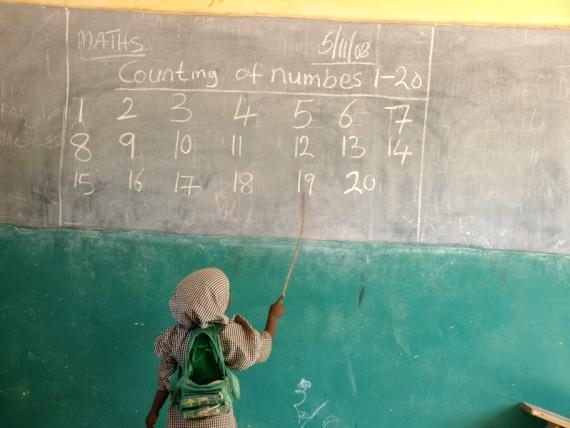 MATHS 5/11/08
Counting of numbes 1-20
1 2 3 4 5 6 7
8 9 10 11 12 13 14
15 16 17 18 19 20